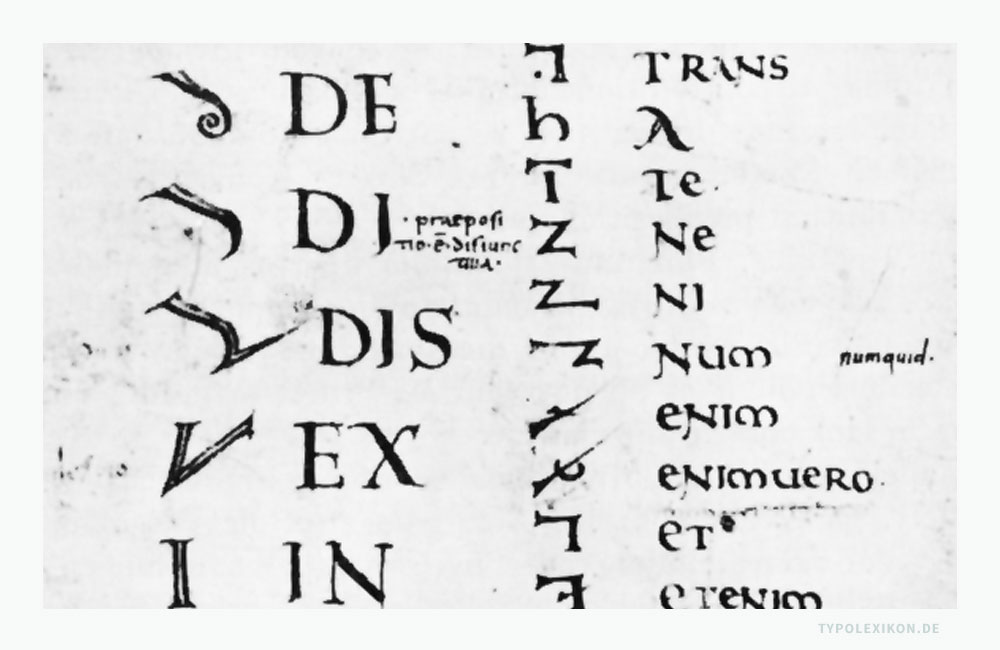 DE
DI · praeposi
tio · ē · disiunc
tiua ·
DIS
EX
IN
TRANS
A
Te
Ne
NI
Num numquid.
eNIm
eNImuero
eT
eTeNIm
TYPOLEXIKON.DE